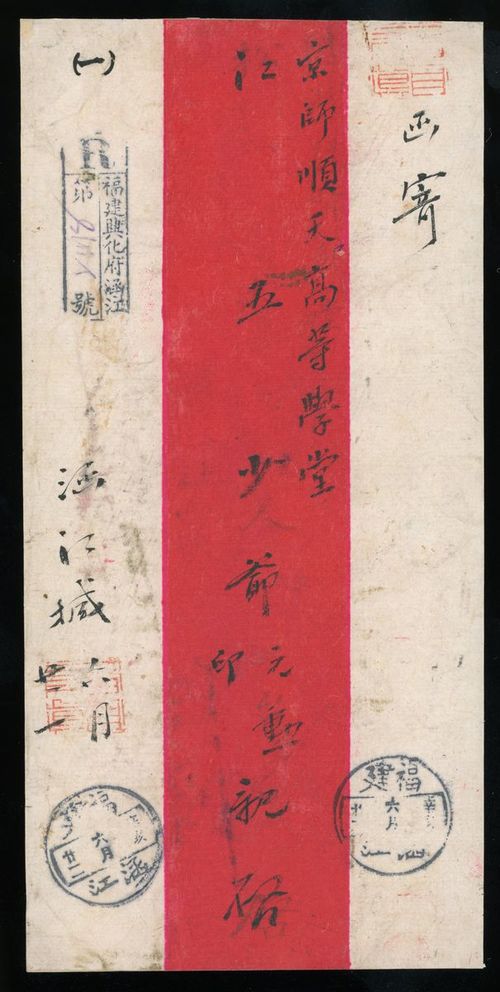 函寄
京師順天高等學堂
江五少大爺
元勳印親啓
涵江緘
六月廿一
(一)
R
福建興化府涵江
第
號
福建
辛亥
六月
廿二
涵江
福建
辛亥
六月
廿二
涵江